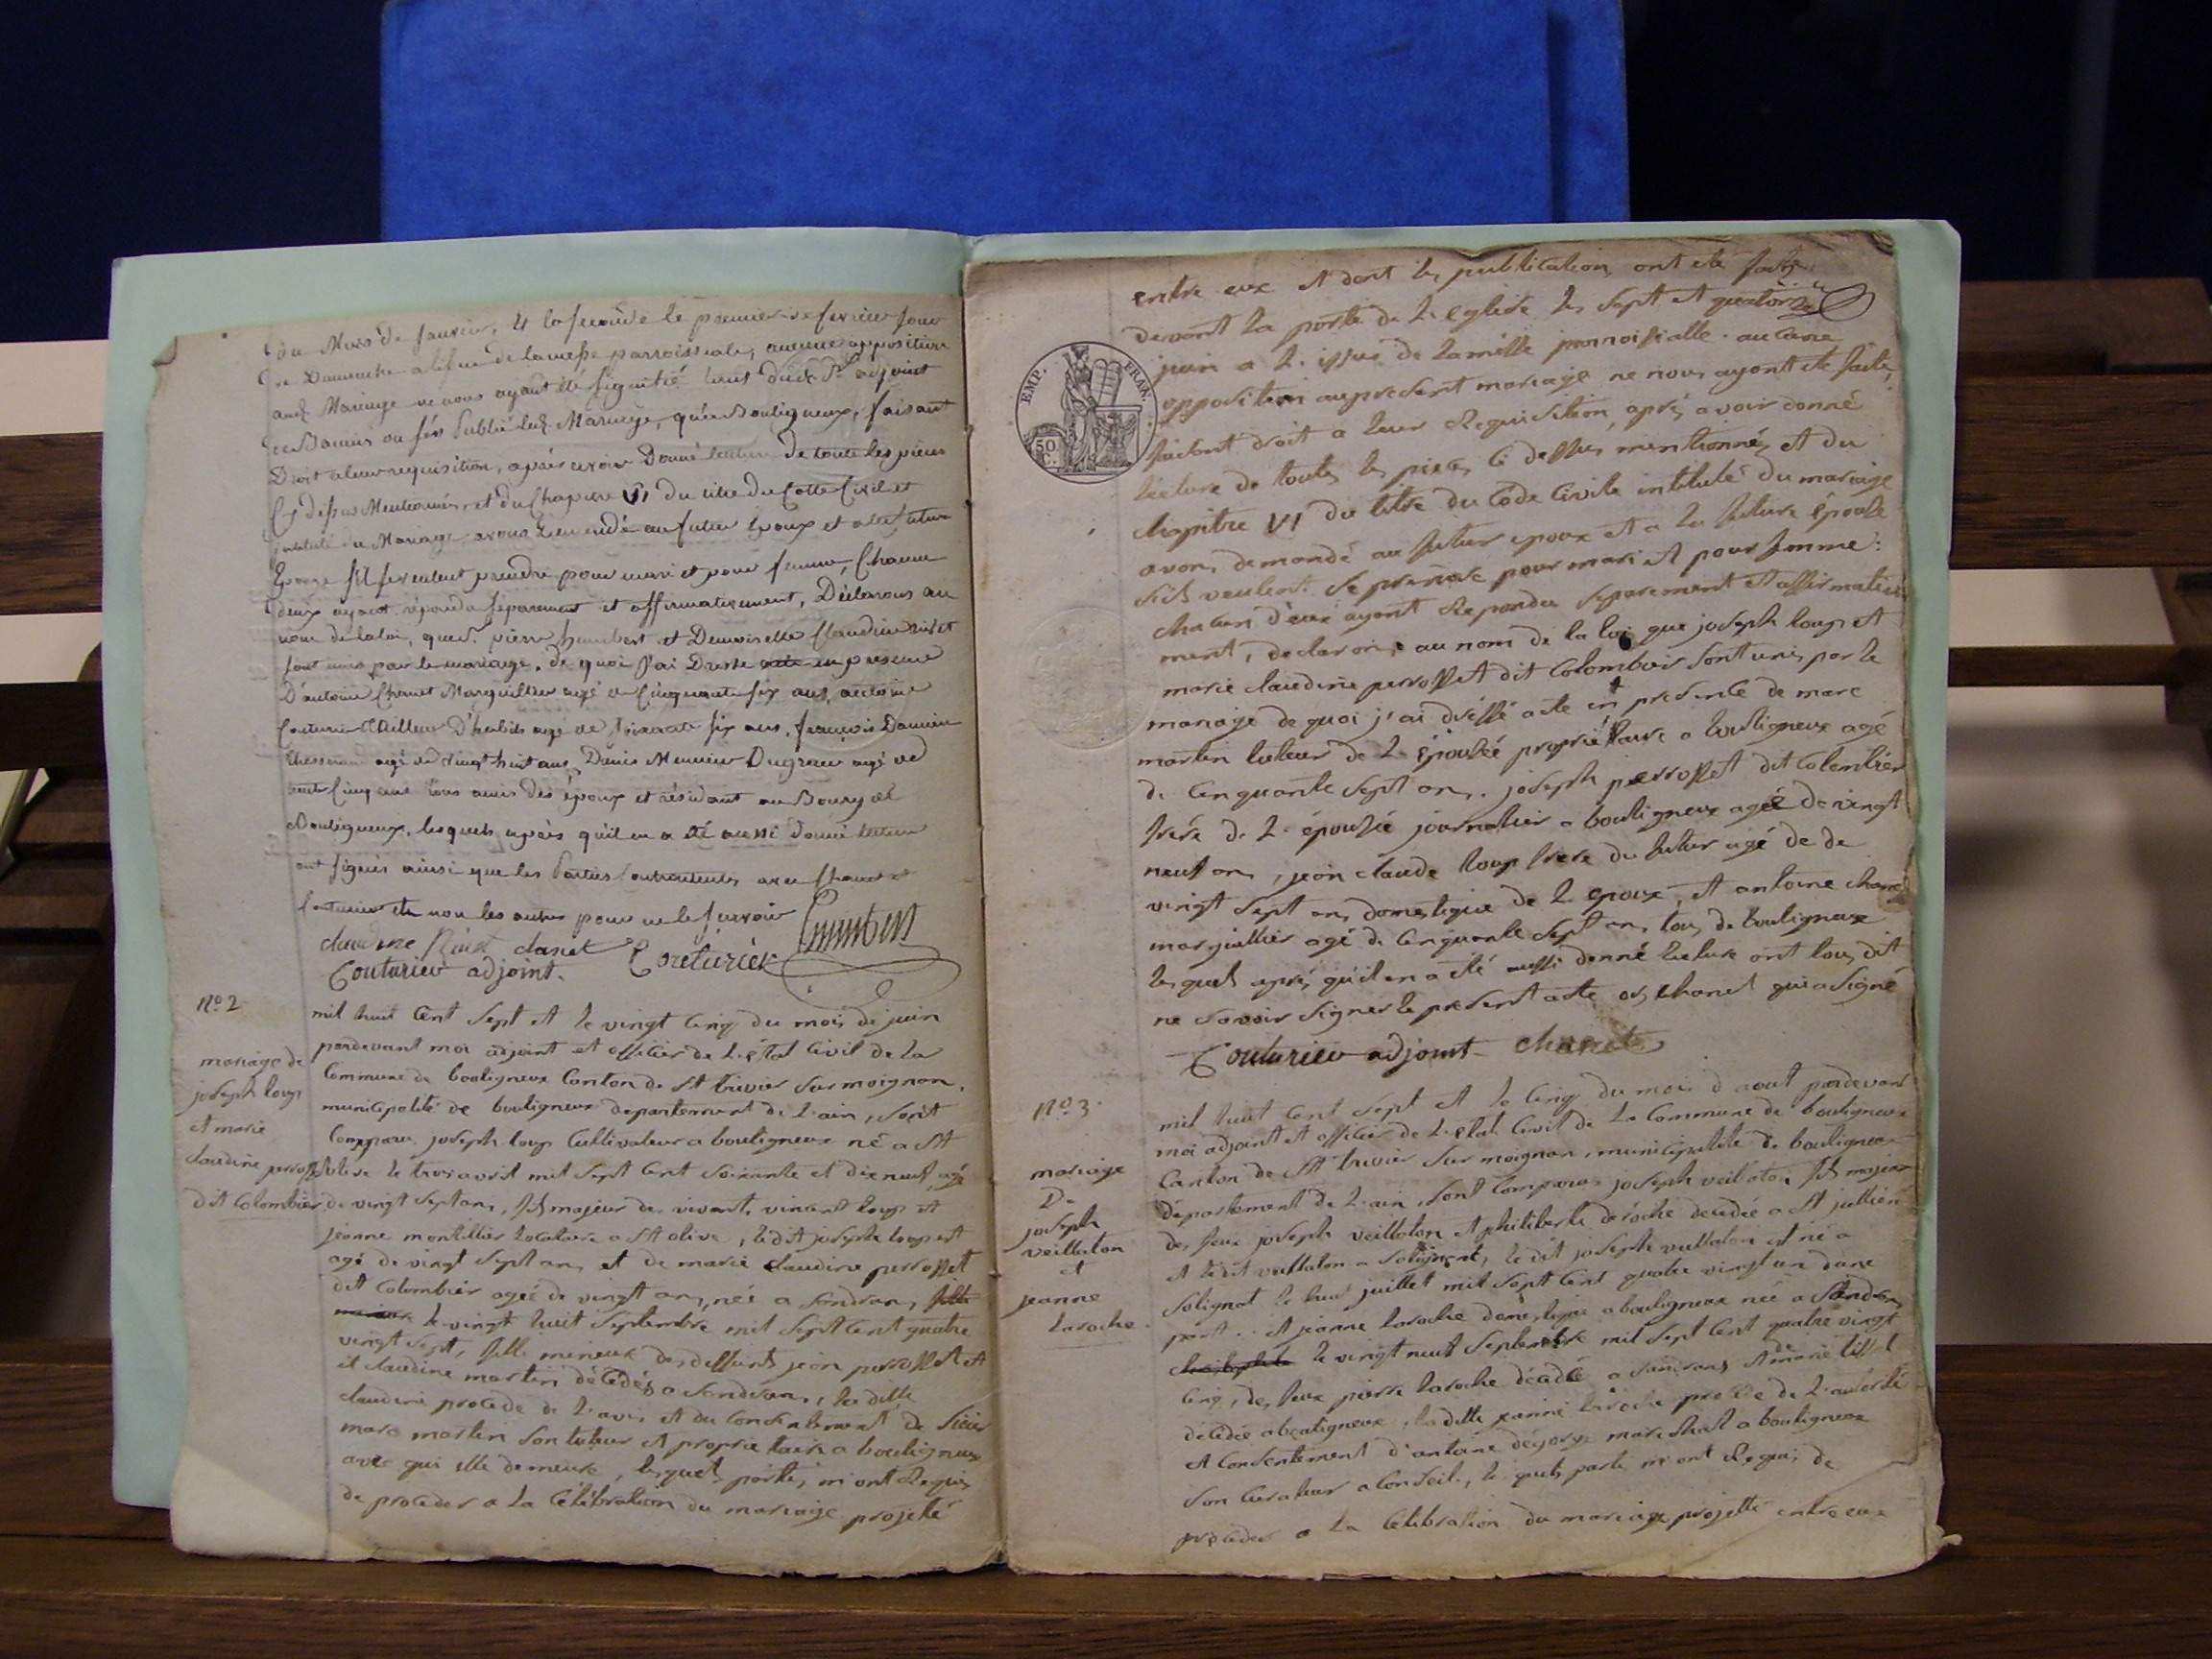 du Mois de Janvier, et la seconde le premier de fevrier jour
de Dimanche a l'issue de la messe parroissiale, aucune opposition
audt Mariage ne nous ayant été signifié
Publié ledt Mariage, faisant
Droit a leur requisition, après avoir Donné lecture de toute les pieces
Ci dessus Mentionnées et du Chapitre VI du titre du Code Civil
intitulé du Mariage, avons demandé au futur Epoux et a la future
Epouse s'il se veulent prendre pour mari et pour femme, Chacun
deux ayant répondu séparément et affirmativement, Déclarons au
nom de la loi, que Sr pierre humbert et Demoiselle Claudine
sont unis par le mariage. de quoi j'ai Dressé acte en presence
D'antoine Chanet Marguillier agé de Cinquante six ans, antoine
Couturier Tailleur D'habits agé de soixante six ans, françois Damien
agé de vingt huit ans, Denis Meunier agé de
Cinq ans tous amis des époux et résidant au Bourg de
Bouligneux, lesquels après qu'il en a été aussi donné lecture
ont signés ainsi que les Parties Contractantes avec Chanet et
Couturier et non les autres pour ne le savoir
claudine chanet Couturier humbert
Couturier adjoint
No 2
mariage de
joseph loup
et marie
claudine perosset
dit Colombier
mil huit Cent Sept et le vingt Cinq du mois de juin
pardevant moi adjoint et officier de L'état Civil de la
Commune de bouligneux Canton de St trivier Sur moignan,
municipalité de bouligneux departement de L'ain, sont
Comparu joseph loup Cultivateur a bouligneux né a St
olive le trois avril mil Sept Cent Soixante et dix neuf, agé
de vingt Sept ans, fils majeur des vivants vincent loup et
jeanne montillier locataire a St olive, ledit joseph loup est
agé de vingt Sept ans, et de marie Claudine perosset
dit Colombier ageé de vingt ans, née a Sandrans, fille
mineure le vingt huit Septembre mil Sept Cent quatre
vingt Sept, fille mineure des deffunts jean perosset et
et claudine martin décédés a Sandrans, la ditte
claudine procede de L'avis et du Consentement de Sieur
marc martin Son tuteur et proprietaire a bouligneux
avec qui elle demeure, lesquels partis m'ont Requis
de proceder a la Célébration du mariage projetté
entre eux et dont les publication, ont été faite
devant la porte de L'eglise les Sept et quatorze
juin a L'issue de la messe parroissialle. aucune
opposition au present mariage ne nous ayant été faite,
faisant droit a leur Requisition, après avoir donné
lecture de toutes les pieces Ci dessus mentionnés et du
Chapitre VI du titre du Code Civile intitulé du mariage
avons demandé au futur epoux et a la future Epouse
S'ils veulent Se prendre pour mari et pour femme:
chacun d'eux ayant Repondu Séparement et affirmative
ment, declarons au nom de la loi que joseph loup et
marie claudine perosset dit Colombier Sont unis par le
mariage de quoi j'ai dressé acte en presence de marc
martin tuteur de L'épousée proprietaire a bouligneux agé
de Cinquante Sept ans. joseph perosset dit Colombier
frere de L'épousée journallier a bouligneux ageé de vingt
neuf ans, jean claude loup frere du futur agé de de
vingt Sept ans domestique de L'epoux, et antoine chanet
marguillier agé de Cinquante Sept ans tous de bouligneux
lesquels après qu'il en a été aussi donné lecture ont tous dit
ne Savoir Signer le present acte chanet qui a Signé
Couturier adjoint chanet
No 3
mariage
De
joseph
veillaton
et
jeanne
Laroche
mil huit Cent Sept et le Cinq du mois d'aout pardevant
moi adjoint et officier de L'etat Civil de La Commune de bouligneux
Canton de St trivier Sur moignan, municipalité de bouligneux
département de L'ain, Sont Comparus joseph veillaton fils majeur
des feux joseph veillaton et philiberte deroche décédée a St jullien
et ledit veillaton a Solignat, le dit joseph veillaton est né a
Solignat le huit juillet mil Sept Cent quatre vingt un d'une
part. et jeanne Laroche domestique a bouligneux née a Sandrans
le vingt neuf Septembre mil Sept Cent quatre vingt
Cinq, des feux pierre Laroche décédé a Sandrans et de marie tissot
décédée a bouligneux, la ditte jeanne Laroche procede de L'autorité
et Consentement d'antoine degorge marechal a bouligneux
Son Curateur a Conseil, lesquels partis m'ont Requis de
proceder a La Célébration du mariage projetté entre eux
EMP. FRAN.
50
C.